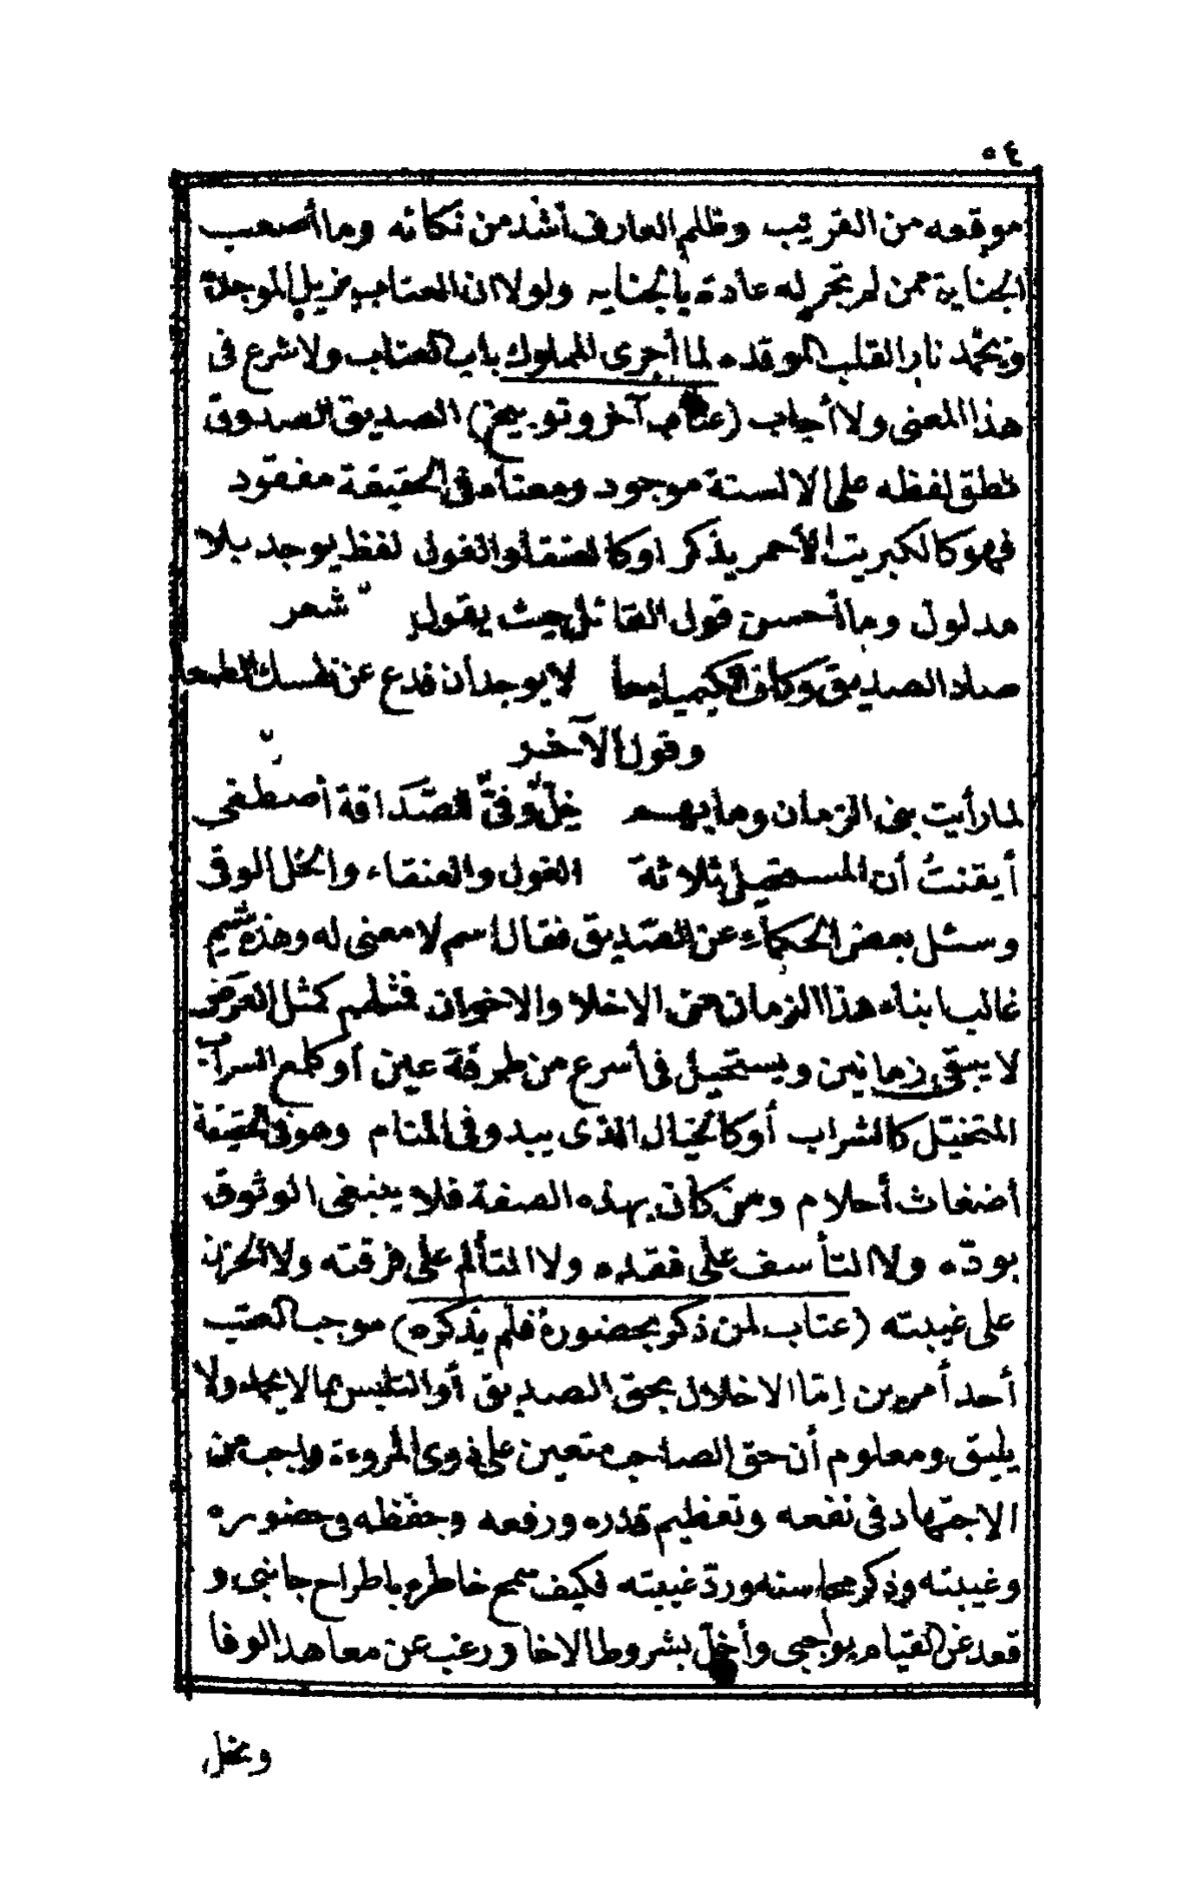 ٥٤
موقعه من القريب وظلم العارف أشد من نكاته وما أصعب
الجناية ممن لم تجر له عادة بالجنايه ولولا ان العتاب مزيل الموجدة
ويخمد نار القلب الموقده لما أجرى المملوك باب العتاب ولا شرع فى
هذا المعنى ولا أجاب (عتاب آخر وتوبيخ) الصديق الصدوق
نطق لفظه على الالسنة موجود ومعناه فى الحقيقة مفقود
فهو كالكبريت الأحمر يذكر اوكالعنقا والغول لفظ يوجد بلا
مدلول وما أحسن قول القائل حيث يقول شعر
صاد الصديق وكاف الكيميا معا لا يوجدان فدع عن نفسك الطمعا
وقول الآخر
لما رأيت بنى الزمان وما بهم خلّ وفىّ للصّداقة أصطفى
أيقنتُ أن المستحيل ثلاثة الغول والعنقاء والخل الوفى
وسئل بعض الحكماء عن الصّديق فقال اسم لا معنى له وهذه شيم
غالب ابناء هذا الزمان من الاخلا والاخوان فمثلهم كمثل العرَض
لا يبقى زمانين ويستحيل فى أسرع من طرفة عين أو كلمع السراب
المتخيّل كالشراب أو كالخيال الذى يبدو فى المنام وهو فى الحقيقة
أضغاث أحلام ومن كان بهذه الصفة فلا ينبغى الوثوق
بودّه ولا التأسف على فقده ولا التألم على فرقته ولا الحزن
على غيبته (عتاب لمن ذكر بحضورهٔ فلم يذكره) موجب العتب
أحد أمرين إمّا الاخلال بحق الصديق أو التلبس بما لا يجمل ولا
يليق ومعلوم أن حق الصاحب متعين على ذوى المروءة واجب من
الاجتهاد فى نفعه وتعظيم قدره ورفعه وحفظه فى حضوره
وغيبته وذكر محاسنه وردّ غيبته فكيف سمح خاطره باطراح جانبى و
قعد عن القيام بواجبى وأخلّ بشروط الاخا ورغب عن معاهد الوفا
وبخل